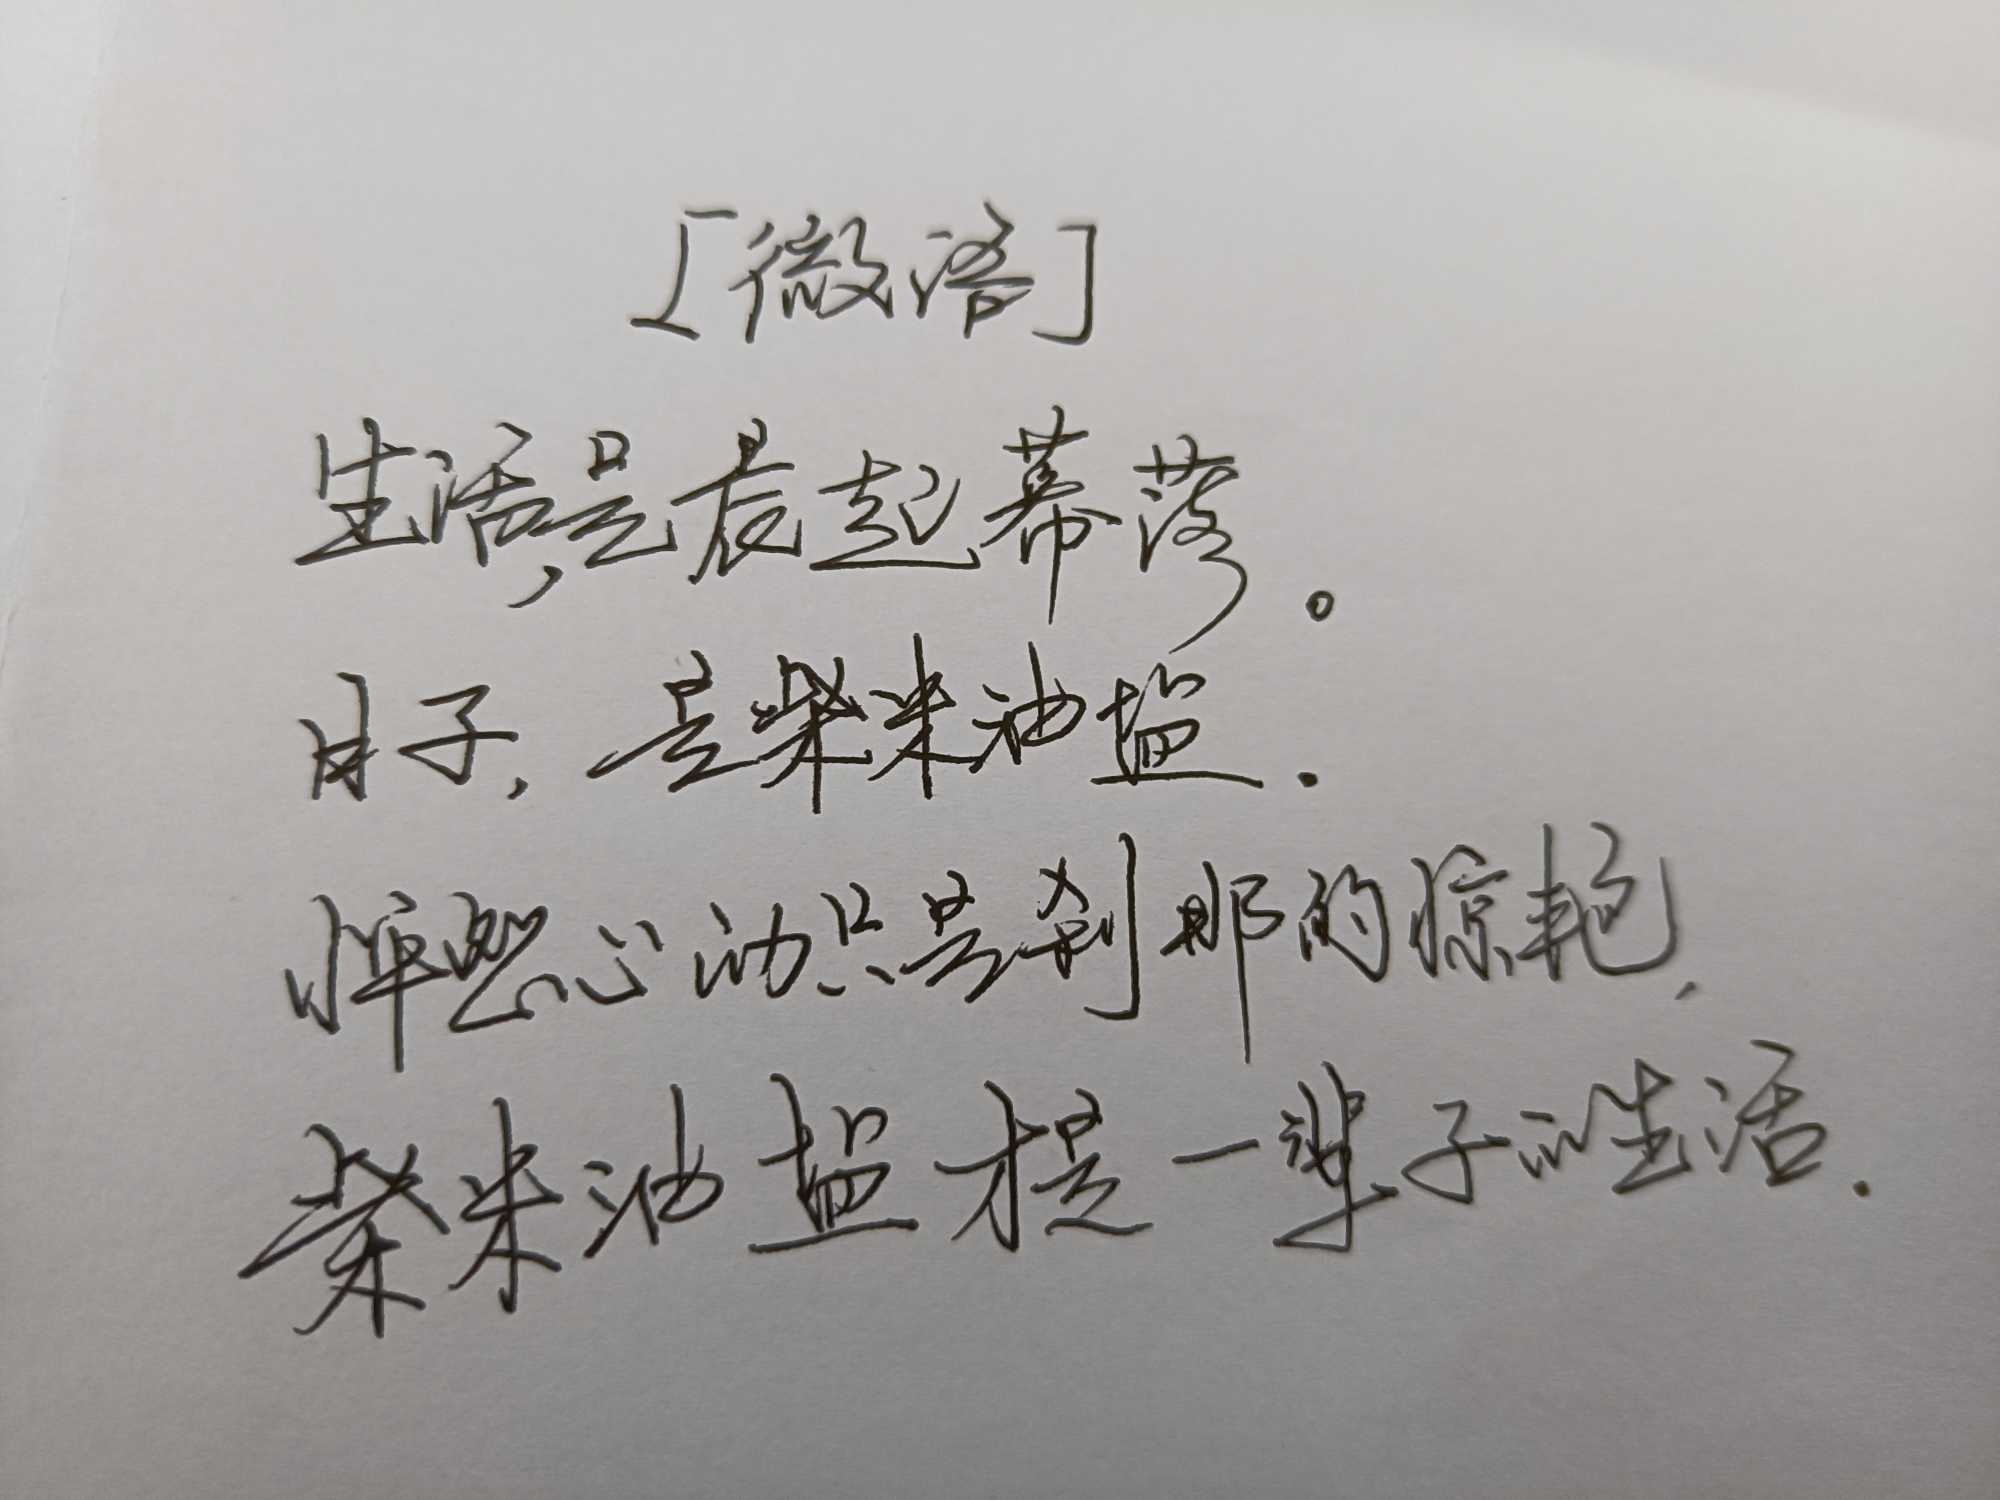 [微语]
生活,是晨起幕落。
日子,是柴米油盐.
怦然心动只是刹那的惊艳,
柴米油盐才是一辈子的生活.